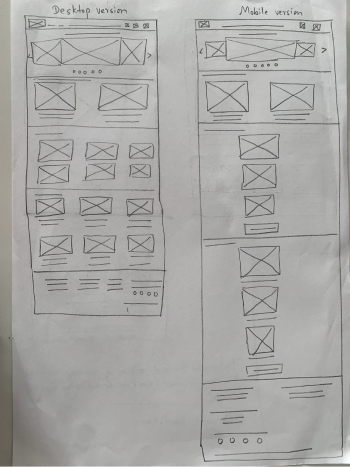 Desktop version
Mobile version